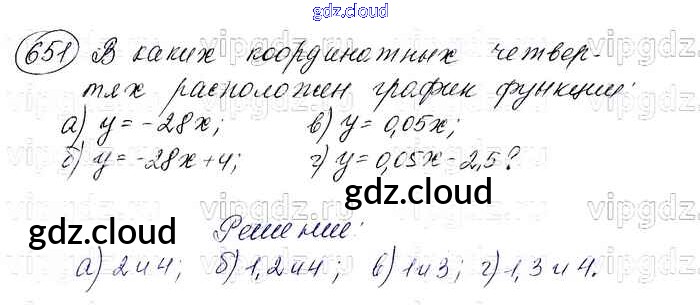 gdz.cloud
651 В каких координатных четвер-
тях расположен график функции:
а) y = -28x; в) y = 0,05x;
б) y = -28x+4; г) y = 0,05x - 2,5?
gdz.cloud
Решение:
gdz.cloud
а) 2 и 4; б) 1, 2 и 4; в) 1 и 3; г) 1, 3 и 4.